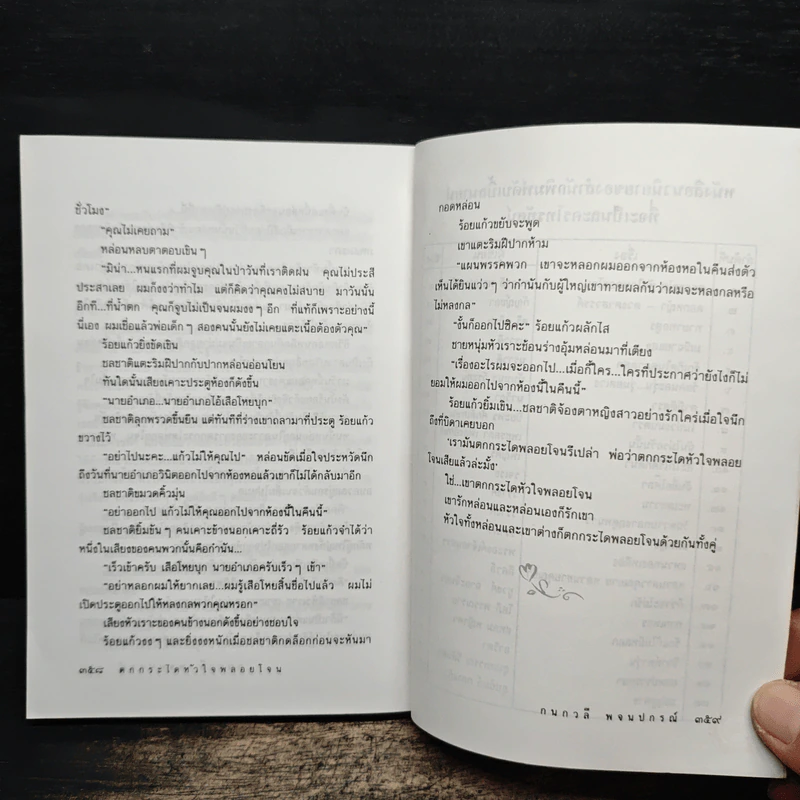 ชั่วโมง"
"คุณไม่เคยถาม"
หล่อนหลบตาตอบเขินๆ
"มิน่า...หนแรกที่ผมจูบคุณในป่าวันที่เราติดฝน คุณไม่ประสี
ประสาเลย ผมก็งงว่าทำไม แต่ก็คิดว่าคุณคงไม่สบาย มาวันนั้น
อีกที...ที่น้ำตก คุณก็จูบไม่เป็นจนผมงงๆ อีก ที่แท้ก็เพราะอย่างนี้
นี่เอง ผมเชื่อแล้วพ่อเด็กๆ สองคนนั้นยังไม่เคยแตะเนื้อต้องตัวคุณ"
ร้อยแก้วยิ่งขัดเขิน
ชลชาติแตะริมฝีปากกับปากหล่อนอ่อนโยน
ทันใดนั้นเสียงเคาะประตูห้องก็ดังขึ้น
"นายอำเภอ...นายอำเภอไอ้เสือโหยบุก"
ชลชาติลุกพรวดขึ้นยืน แต่ทันทีที่ร่างเขาถลามาที่ประตู ร้อยแก้ว
ขวางไว้
"อย่าไปนะคะ...แก้วไม่ให้คุณไป" หล่อนขัดเมื่อใจประหวัดนึก
ถึงวันที่นายอำเภอวินิตออกไปจากห้องหอแล้วเขาก็ไม่ได้กลับมาอีก
ชลชาติขมวดคิ้วมุ่น
"อย่าออกไป แก้วไม่ให้คุณออกไปจากห้องนี้คืนนี้"
ชลชาติยิ้มขันๆ คนเคาะข้างนอกเคาะถี่รัว ร้อยแก้วจำได้ว่า
หนึ่งในเสียงของคนพวกนั้นคือกำนัน...
"เร็วเข้าครับ เสือโหยบุก นายอำเภอครับเร็วๆ เข้า"
"อย่าหลอกผมให้ยากเลย...ผมรู้เสือโหยสิ้นชื่อไปแล้ว ผมไม่
เปิดประตูออกไปให้หลงกลพวกคุณหรอก"
เสียงหัวเราะของคนข้างนอกดังขึ้นอย่างชอบใจ
ร้อยแก้วงงๆ และยิ่งงงหนักเมื่อชลชาติกดล็อกก่อนจะหันมา
๓๕๘ ตกกระไดหัวใจพลอยโจน
กอดหล่อน
ร้อยแก้วขยับจะพูด
เขาแตะริมฝีปากห้าม
"แผนพรรคพวก เขาจะหลอกผมออกจากห้องหอในคืนส่งตัว
เห็นได้ยินแว่วๆ ว่ากำนันกับผู้ใหญ่เขาทายผลกันว่าผมจะหลงกลหรือ
ไม่หลงกล"
"งั้นก็ออกไปซิคะ" ร้อยแก้วผลักไส
ชายหนุ่มหัวเราะช้อนร่างอุ้มหล่อนมาที่เตียง
"เรื่องอะไรผมจะออกไป...เมื่อกี้ใคร...ใครที่ประกาศว่ายังไงก็ไม่
ยอมให้ผมออกไปจากห้องนี้ในคืนนี้"
ร้อยแก้วยิ้มเขิน...ชลชาติจ้องตาหญิงสาวอย่างรักใคร่เมื่อใจนึก
ถึงที่บิดาเคยบอก
'เรามันตกกระไดพลอยโจนรึเปล่า พ่อว่าตกกระไดหัวใจพลอย
โจนเสียแล้วล่ะมั้ง'
ใช่...เขาตกกระไดหัวใจพลอยโจน
เขารักหล่อนและหล่อนเองก็รักเขา
หัวใจทั้งหล่อนและเขาต่างก็ตกกระไดพลอยโจนด้วยกันทั้งคู่
กนกวลี พจนปกรณ์ ๓๕๙